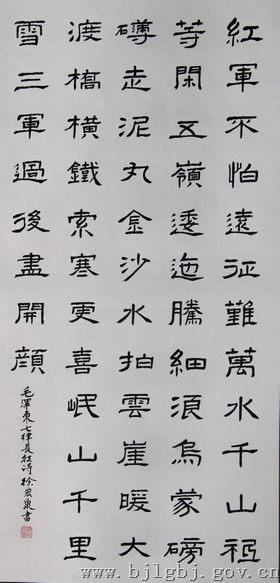 紅軍不怕遠征難萬水千山祗
等閑五嶺逶迤騰細浪烏蒙磅
礴走泥丸金沙水拍雲崖暖大
渡橋橫鐵索寒更喜岷山千里
雪三軍過後盡開顏
毛澤東七律長征詩 徐宏泉書
www.bjlgbj.gov.cn